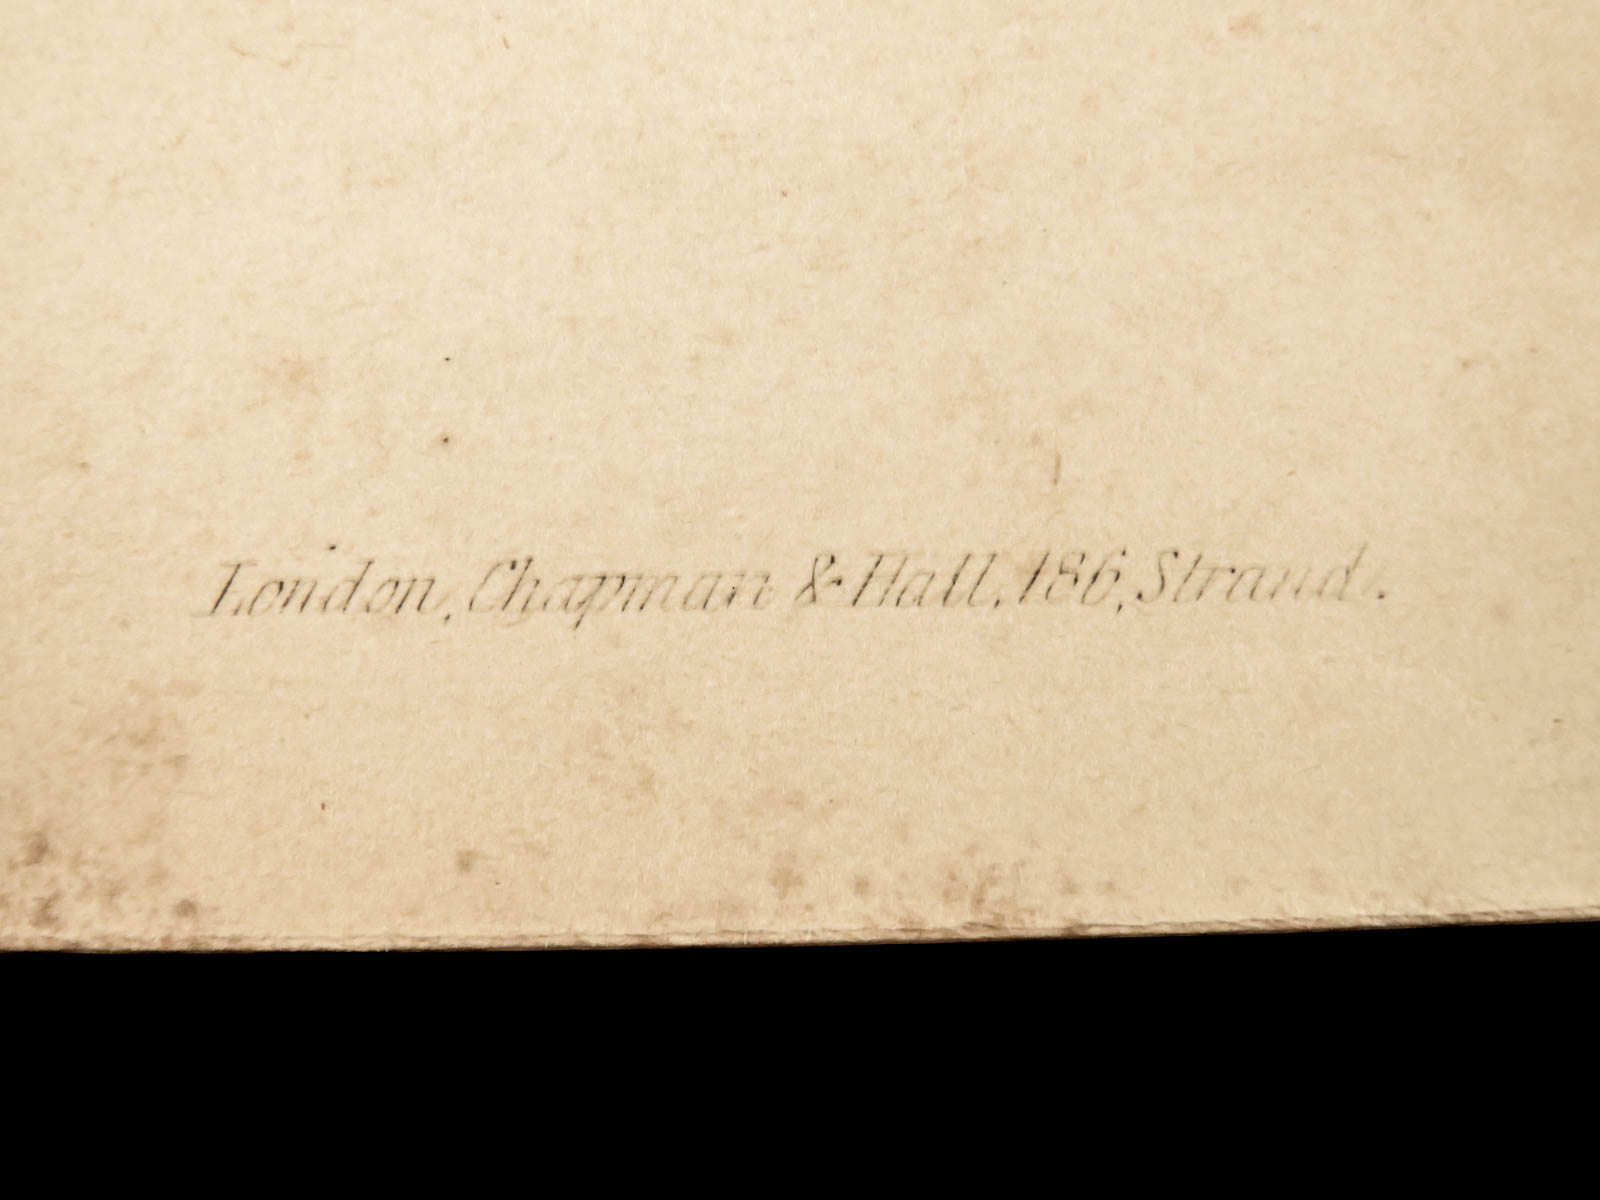 London, Chapman & Hall, 186, Strand.